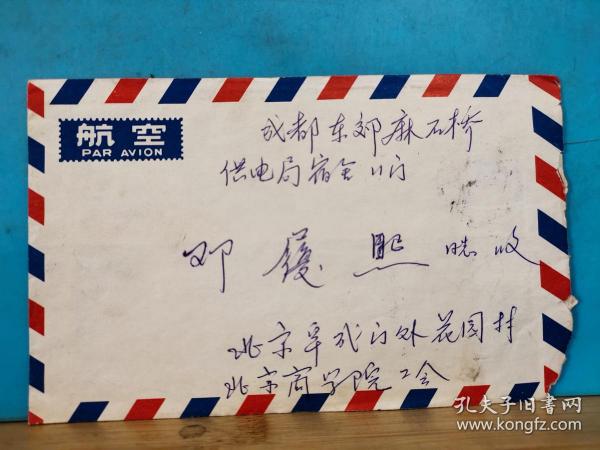 航空
PAR AVION
成都东郊麻石桥
供电局宿舍11门
邓 熙 收
北京阜成门外花园村
北京商学院工会
孔夫子旧书网
www.kongfz.com